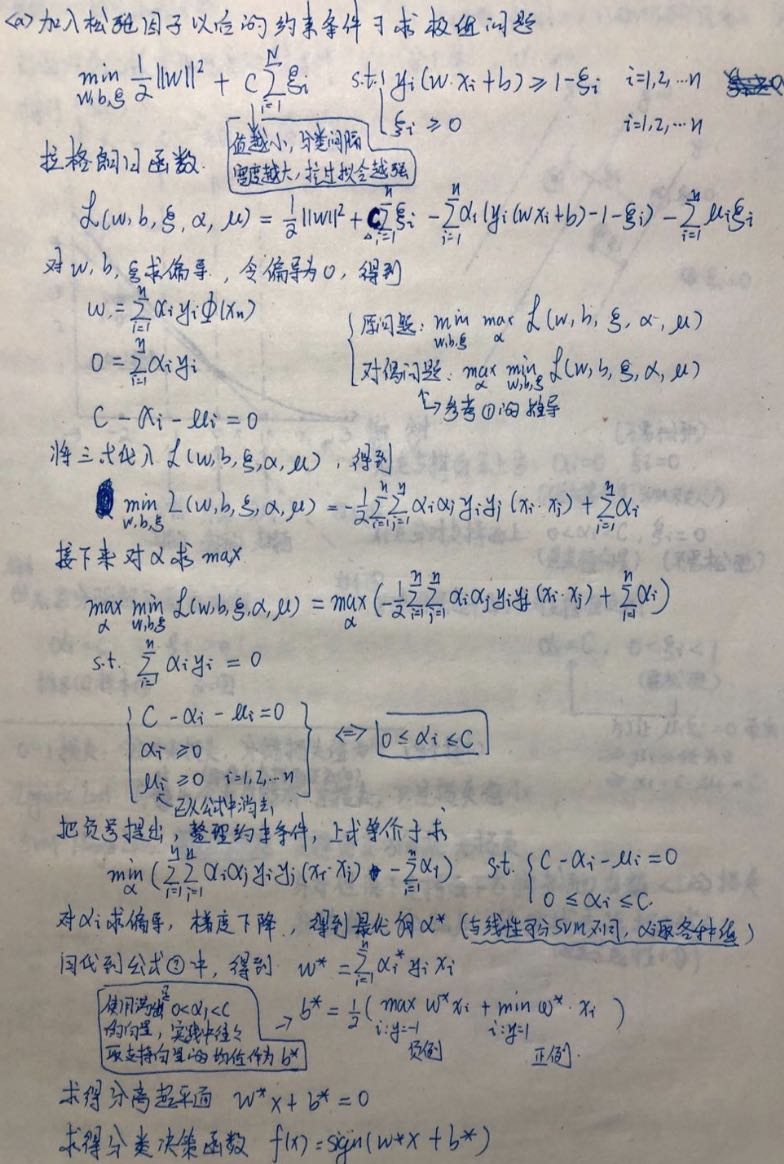 (2) 加入松弛因子以后的约束条件下求极值问题
min w,b,ξ 1/2 ||w||² + C Σ_{i=1}^{N} ξi s.t. { yi(w·xi+b) ≥ 1-ξi i=1,2,…n
ξi ≥ 0 i=1,2,…n
值越小,分类间隔
宽度越大,抗过拟合越强
拉格朗日函数.
L(w, b, ξ, α, μ) = 1/2 ||w||² + C Σ_{i=1}^{n} ξi - Σ_{i=1}^{n} αi(yi(wxi+b)-1-ξi) - Σ_{i=1}^{n} μiξi
对w, b, ξ求偏导, 令偏导为0, 得到
w = Σ_{i=1}^{n} αi yi Φ(xn)
0 = Σ_{i=1}^{n} αi yi
C - αi - μi = 0
{ 原问题: min w,b,ξ max α L(w, b, ξ, α, μ)
对偶问题: max α min w,b,ξ L(w, b, ξ, α, μ)
↳ 参考①的推导
将三式代入 L(w, b, ξ, α, μ), 得到
min w,b,ξ L(w, b, ξ, α, μ) = -1/2 Σ_{i=1}^{n} Σ_{j=1}^{n} αiαj yiyj (xi·xj) + Σ_{i=1}^{n} αi
接下来对α求max
max α min w,b,ξ L(w, b, ξ, α, μ) = max α (-1/2 Σ_{i=1}^{n} Σ_{j=1}^{n} αiαj yiyj (xi·xj) + Σ_{i=1}^{n} αi)
s.t. Σ_{i=1}^{n} αi yi = 0
{ C - αi - μi = 0
αi ≥ 0
μi ≥ 0 i=1,2,…n } ⇔ 0 ≤ αi ≤ C
已从公式中消去
把负号提出, 整理约束条件, 上式等价于求
min α (Σ_{i=1}^{n} Σ_{j=1}^{n} αiαj yiyj (xi·xj) - Σ_{i=1}^{n} αi) s.t. { C - αi - μi = 0
0 ≤ αi ≤ C
对αi求偏导, 梯度下降, 得到最优解α* (与线性可分SVM不同, αi取各种值)
回代到公式②中, 得到 w* = Σ_{i=1}^{n} αi* yi xi
使用满足 0<αi<C
的向量, 实践中往往
取支持向量的均值作为b*
→ b* = 1/2 ( max i:y=-1 w*xi + min i:y=1 w*·xi )
负例 正例.
求得分离超平面 w*x + b* = 0
求得分类决策函数 f(x) = sign(w*x + b*)